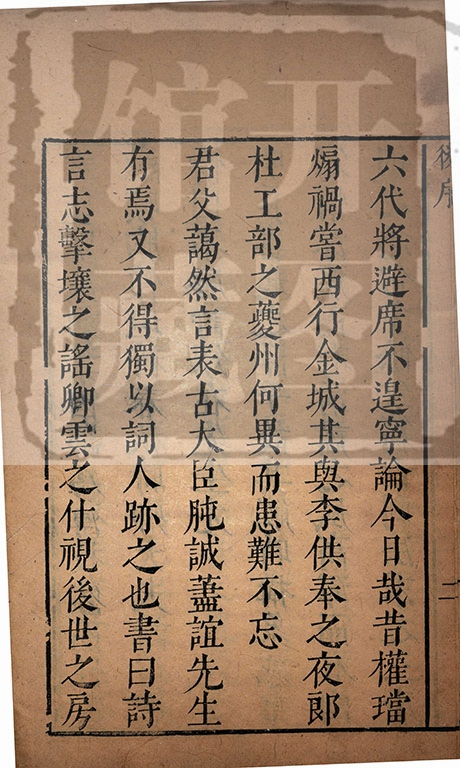 後序
二
六代將避席不遑寧論今日哉昔權璫
煽禍嘗西行金城其與李供奉之夜郎
杜工部之夔州何異而患難不忘
君父藹然言表古大臣肫誠藎誼先生
有焉又不得獨以詞人跡之也書曰詩
言志擊壤之謠卿雲之什視後世之房